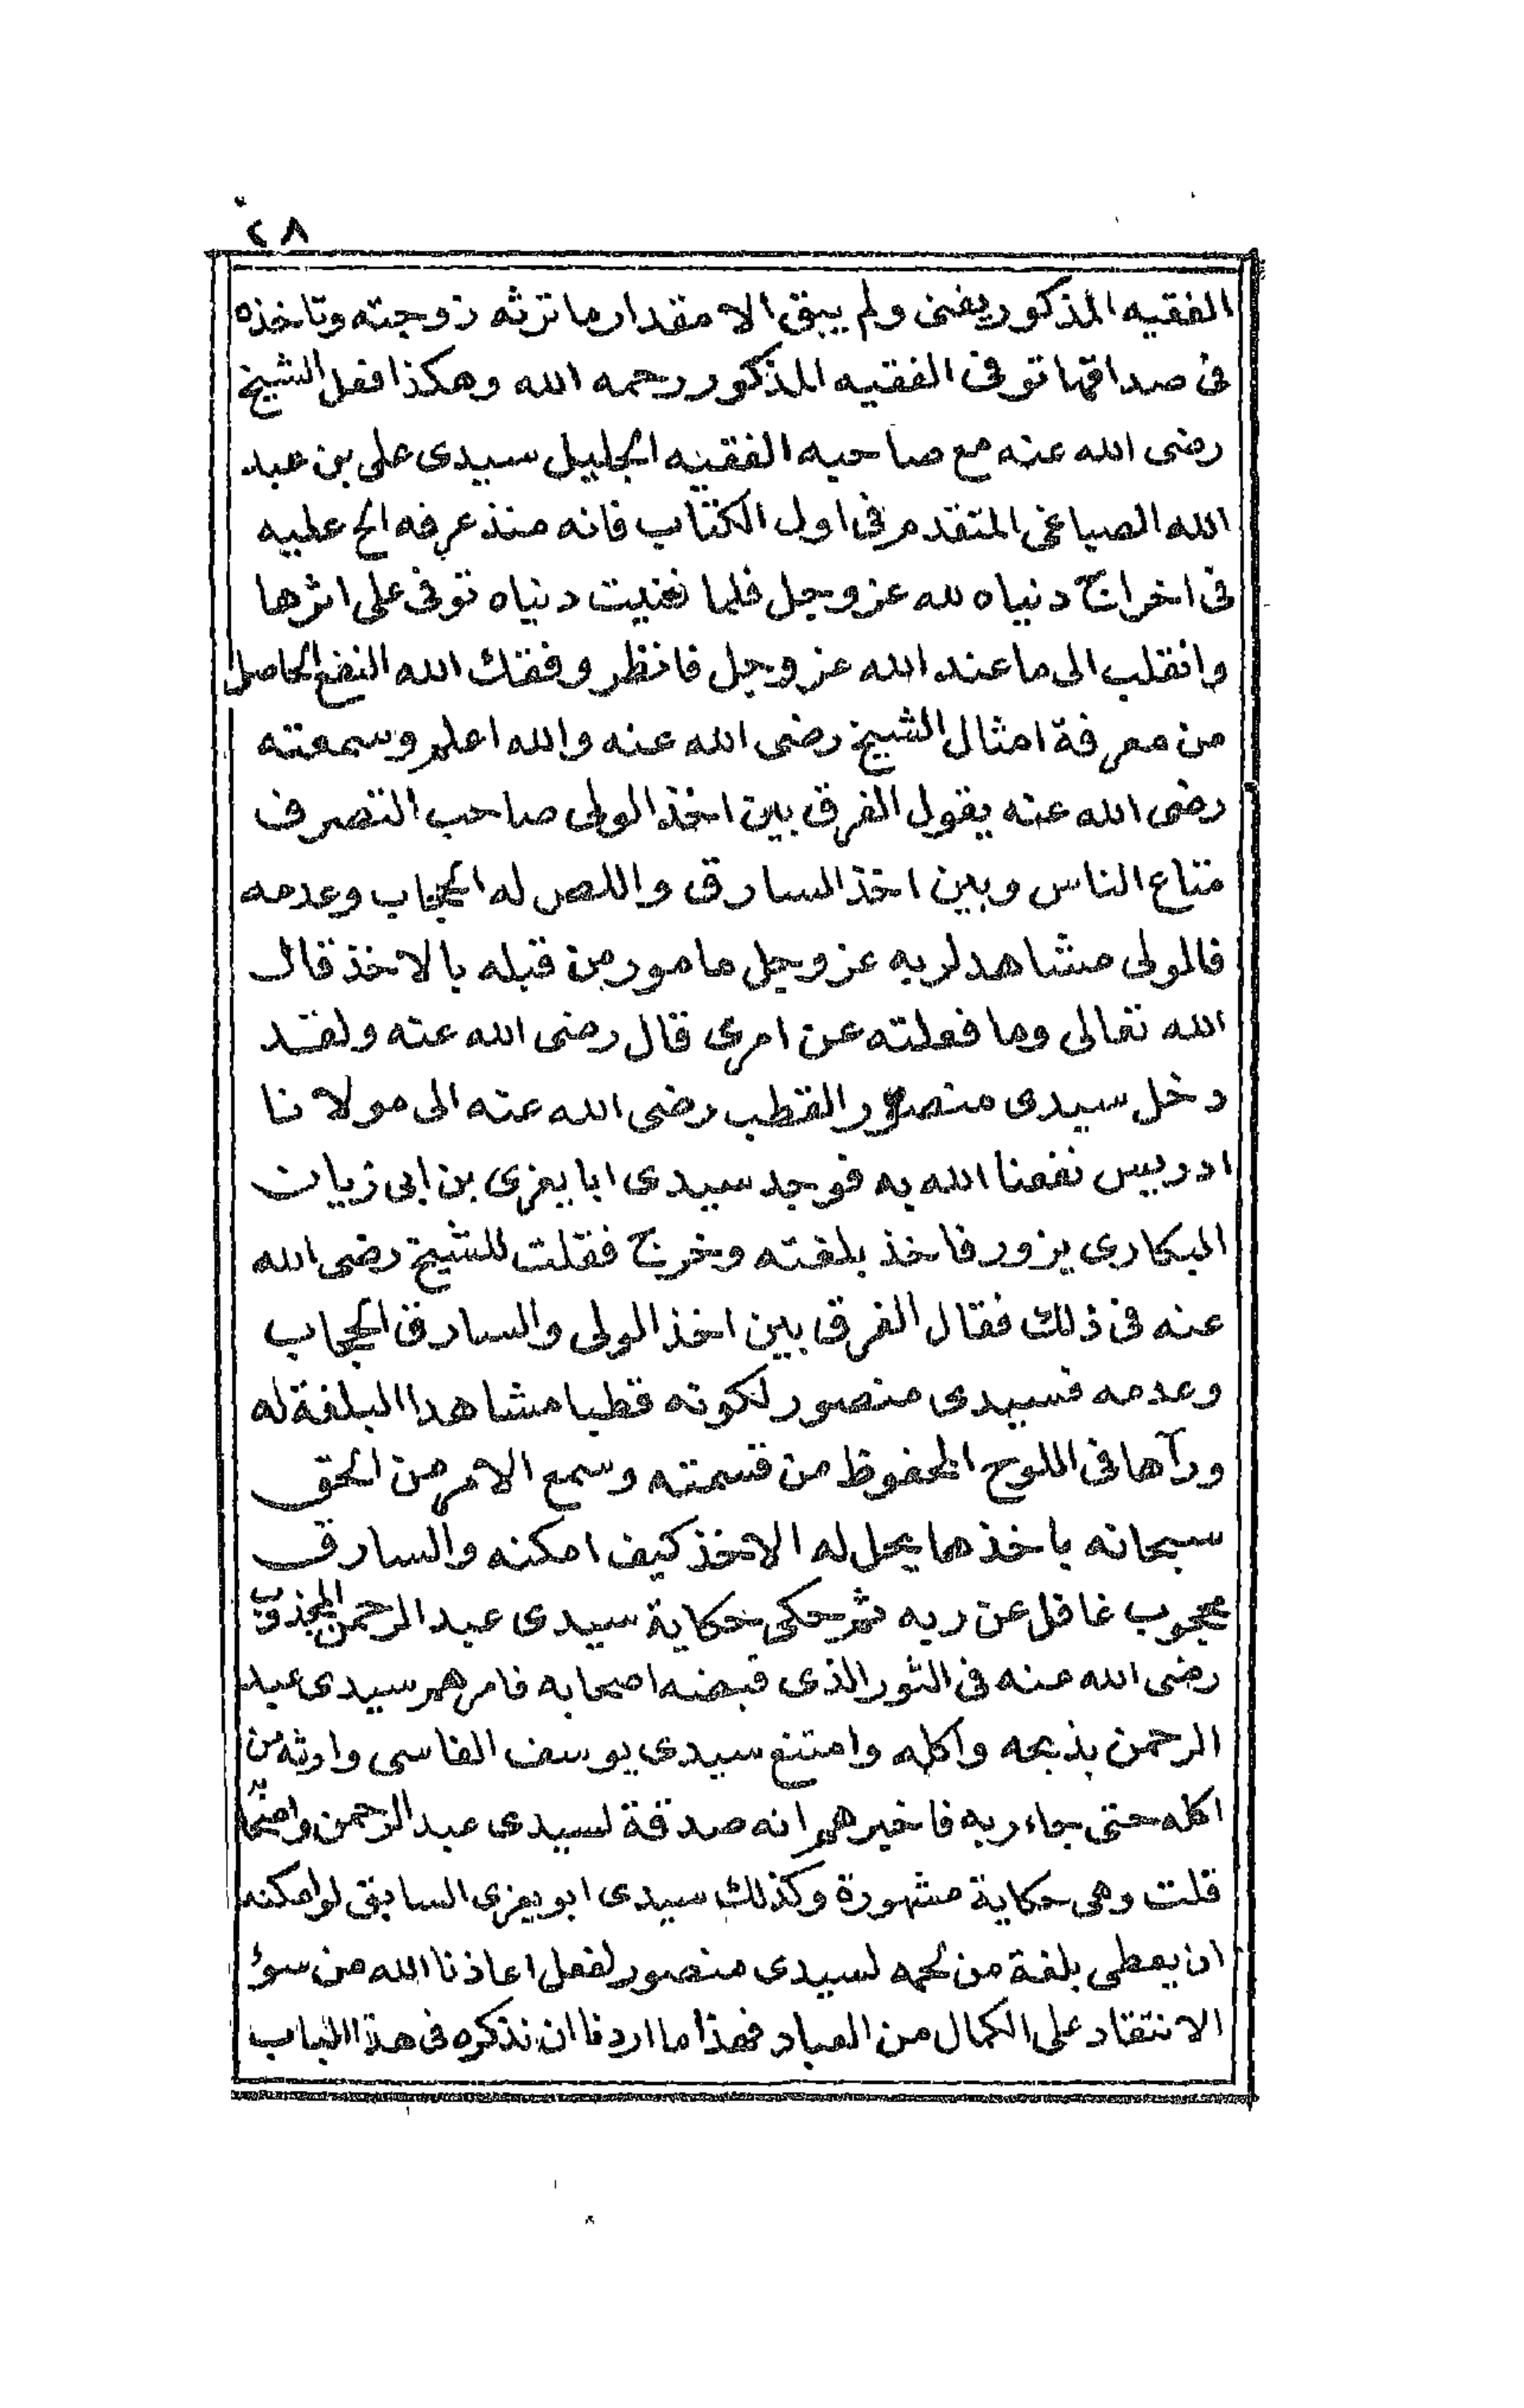 ٢٨
الفقيه المذكور يفنى ولم يبق الا مقدار ما ترثه زوجته وتاخذه
فى صداقها توفى الفقيه المذكور رحمه الله وهكذا فعل الشيخ
رضى الله عنه مع صاحبه الفقيه الجليل سيدى على بن عبد
الله الصباغى المتقدم فى اول الكتاب فانه منذ عرفه الح عليه
فى اخراج دنياه لله عز وجل فلما فنيت دنياه توفى على اثرها
وانقلب الى ما عند الله عز وجل فانظر وفقك الله النفع الحاصل
من معرفة امثال الشيخ رضى الله عنه والله اعلم وسمعته
رضى الله عنه يقول الفرق بين اخذ الولى صاحب التصرف
متاع الناس وبين اخذ السارق واللص له الحجاب وعدمه
فالولى مشاهد لربه عز وجل مامور من قبله بالاخذ قال
الله تعالى وما فعلته عن امرى قال رضى الله عنه ولقد
دخل سيدى منصور القطب رضى الله عنه الى مولانا
ادريس نفعنا الله به فوجد سيدى ابا يعزى بن ابى زيات
البكارى يزور فاخذ بلغته وخرج فقلت للشيخ رضى الله
عنه فى ذلك فقال الفرق بين اخذ الولى والسارق الحجاب
وعدمه فسيدى منصور لكونه قطبا مشاهدا البلغة له
ورآها فى اللوح المحفوظ من قسمته وسمع الامر من الحق
سبحانه باخذها يحل له الاخذ كيف امكنه والسارق
محجوب غافل عن ربه ثم حكى حكاية سيدى عبد الرحمن المجذوب
رضى الله عنه فى الثور الذى قبضه اصحابه فامرهم سيدى عبد
الرحمن بذبحه واكله وامتنع سيدى يوسف الفاسى وارثه من
اكله حتى جاء ربه فاخبرهم انه صدقة لسيدى عبد الرحمن
قلت وهى حكاية مشهورة وكذلك سيدى ابو يعزى السابق لو امكنه
ان يعطى بلغة من لحمه لسيدى منصور لفعل اعاذنا الله من سوء
الانتقاد على الكمال من العباد فهذا ما اردنا ان نذكره فى هذا الباب